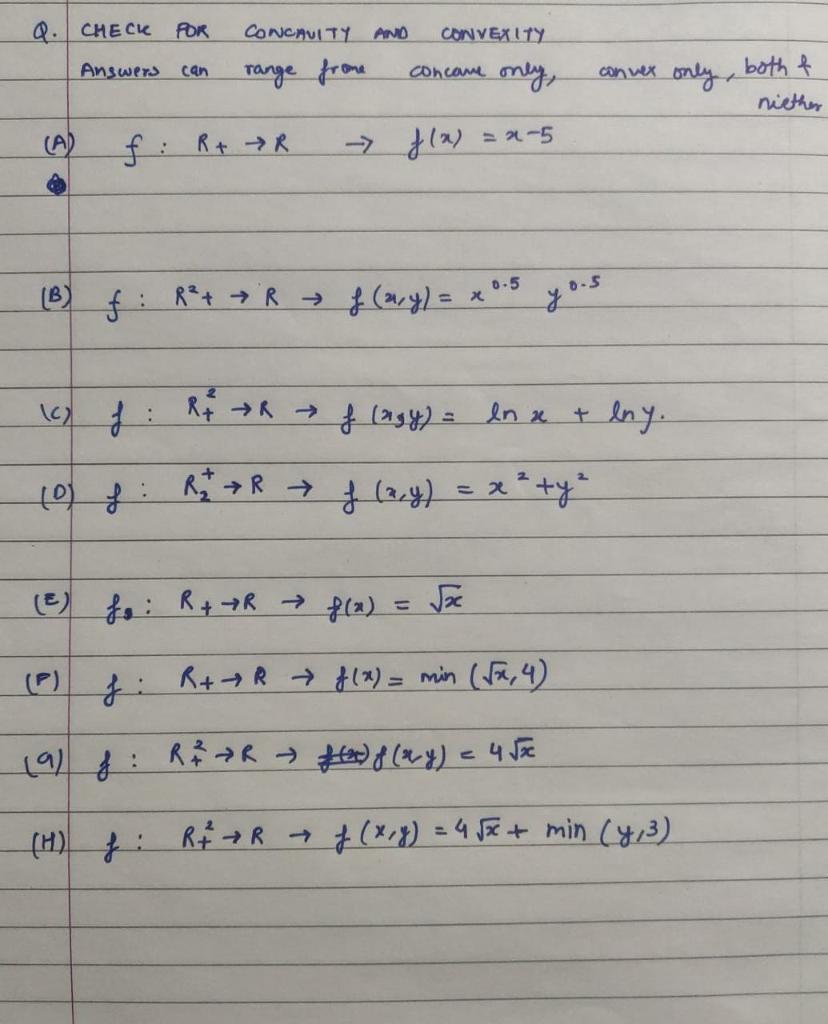 Q. CHECK FOR CONCAVITY AND CONVEXITY
Answers can range from concave only, convex only, both &
niether
(A) f : R+ → R → f(x) = x-5
(B) f : R²+ → R → f(x,y) = x^0.5 y^0.5
(C) f : R₊² → R → f(x,y) = ln x + ln y.
(D) f : R₂⁺ → R → f(x,y) = x² + y²
(E) f : R+ → R → f(x) = √x
(F) f : R+ → R → f(x) = min (√x, 4)
(G) f : R₊² → R → f(x y) = 4√x
(H) f : R₊² → R → f(x,y) = 4√x + min (y,3)